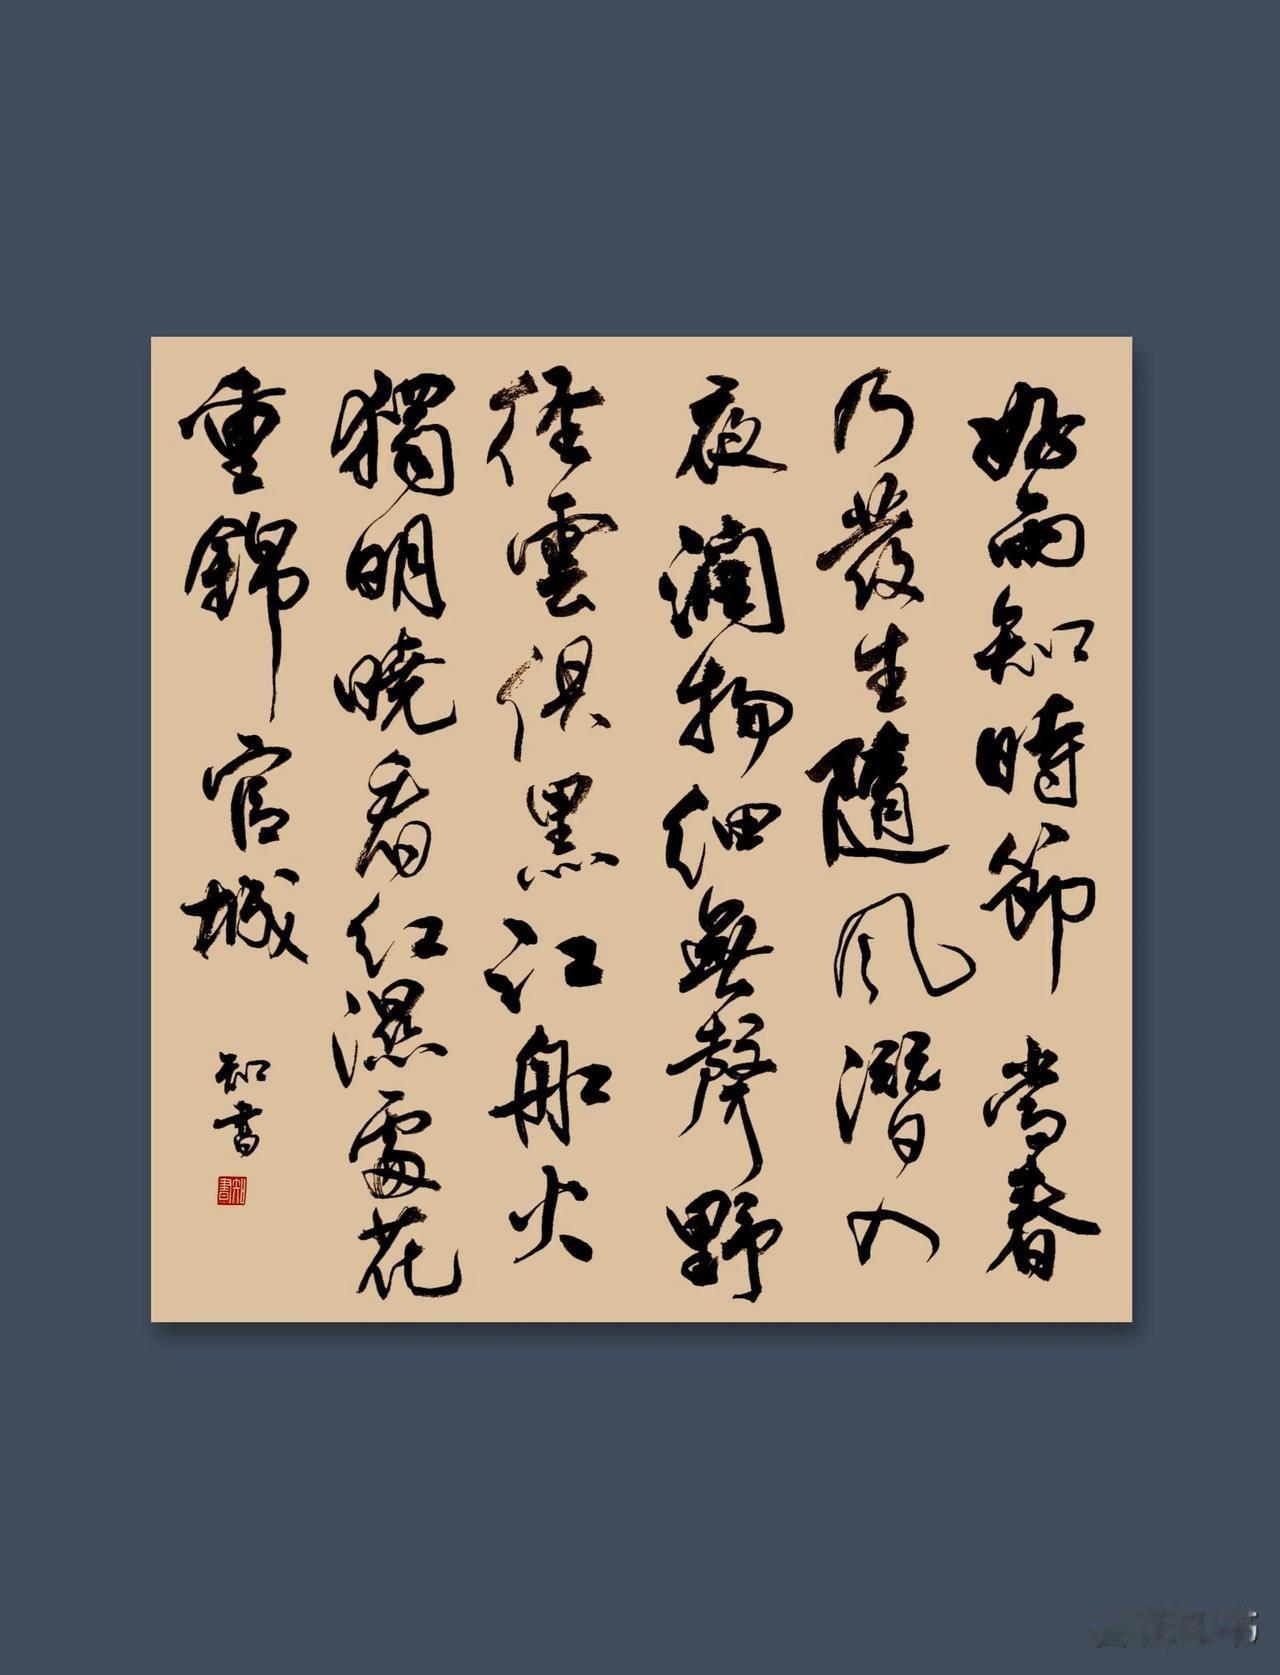 好雨知時節當春
乃發生隨風潛入
夜潤物細無聲野
徑雲俱黑江船火
獨明曉看紅濕處花
重錦官城
知書
知書